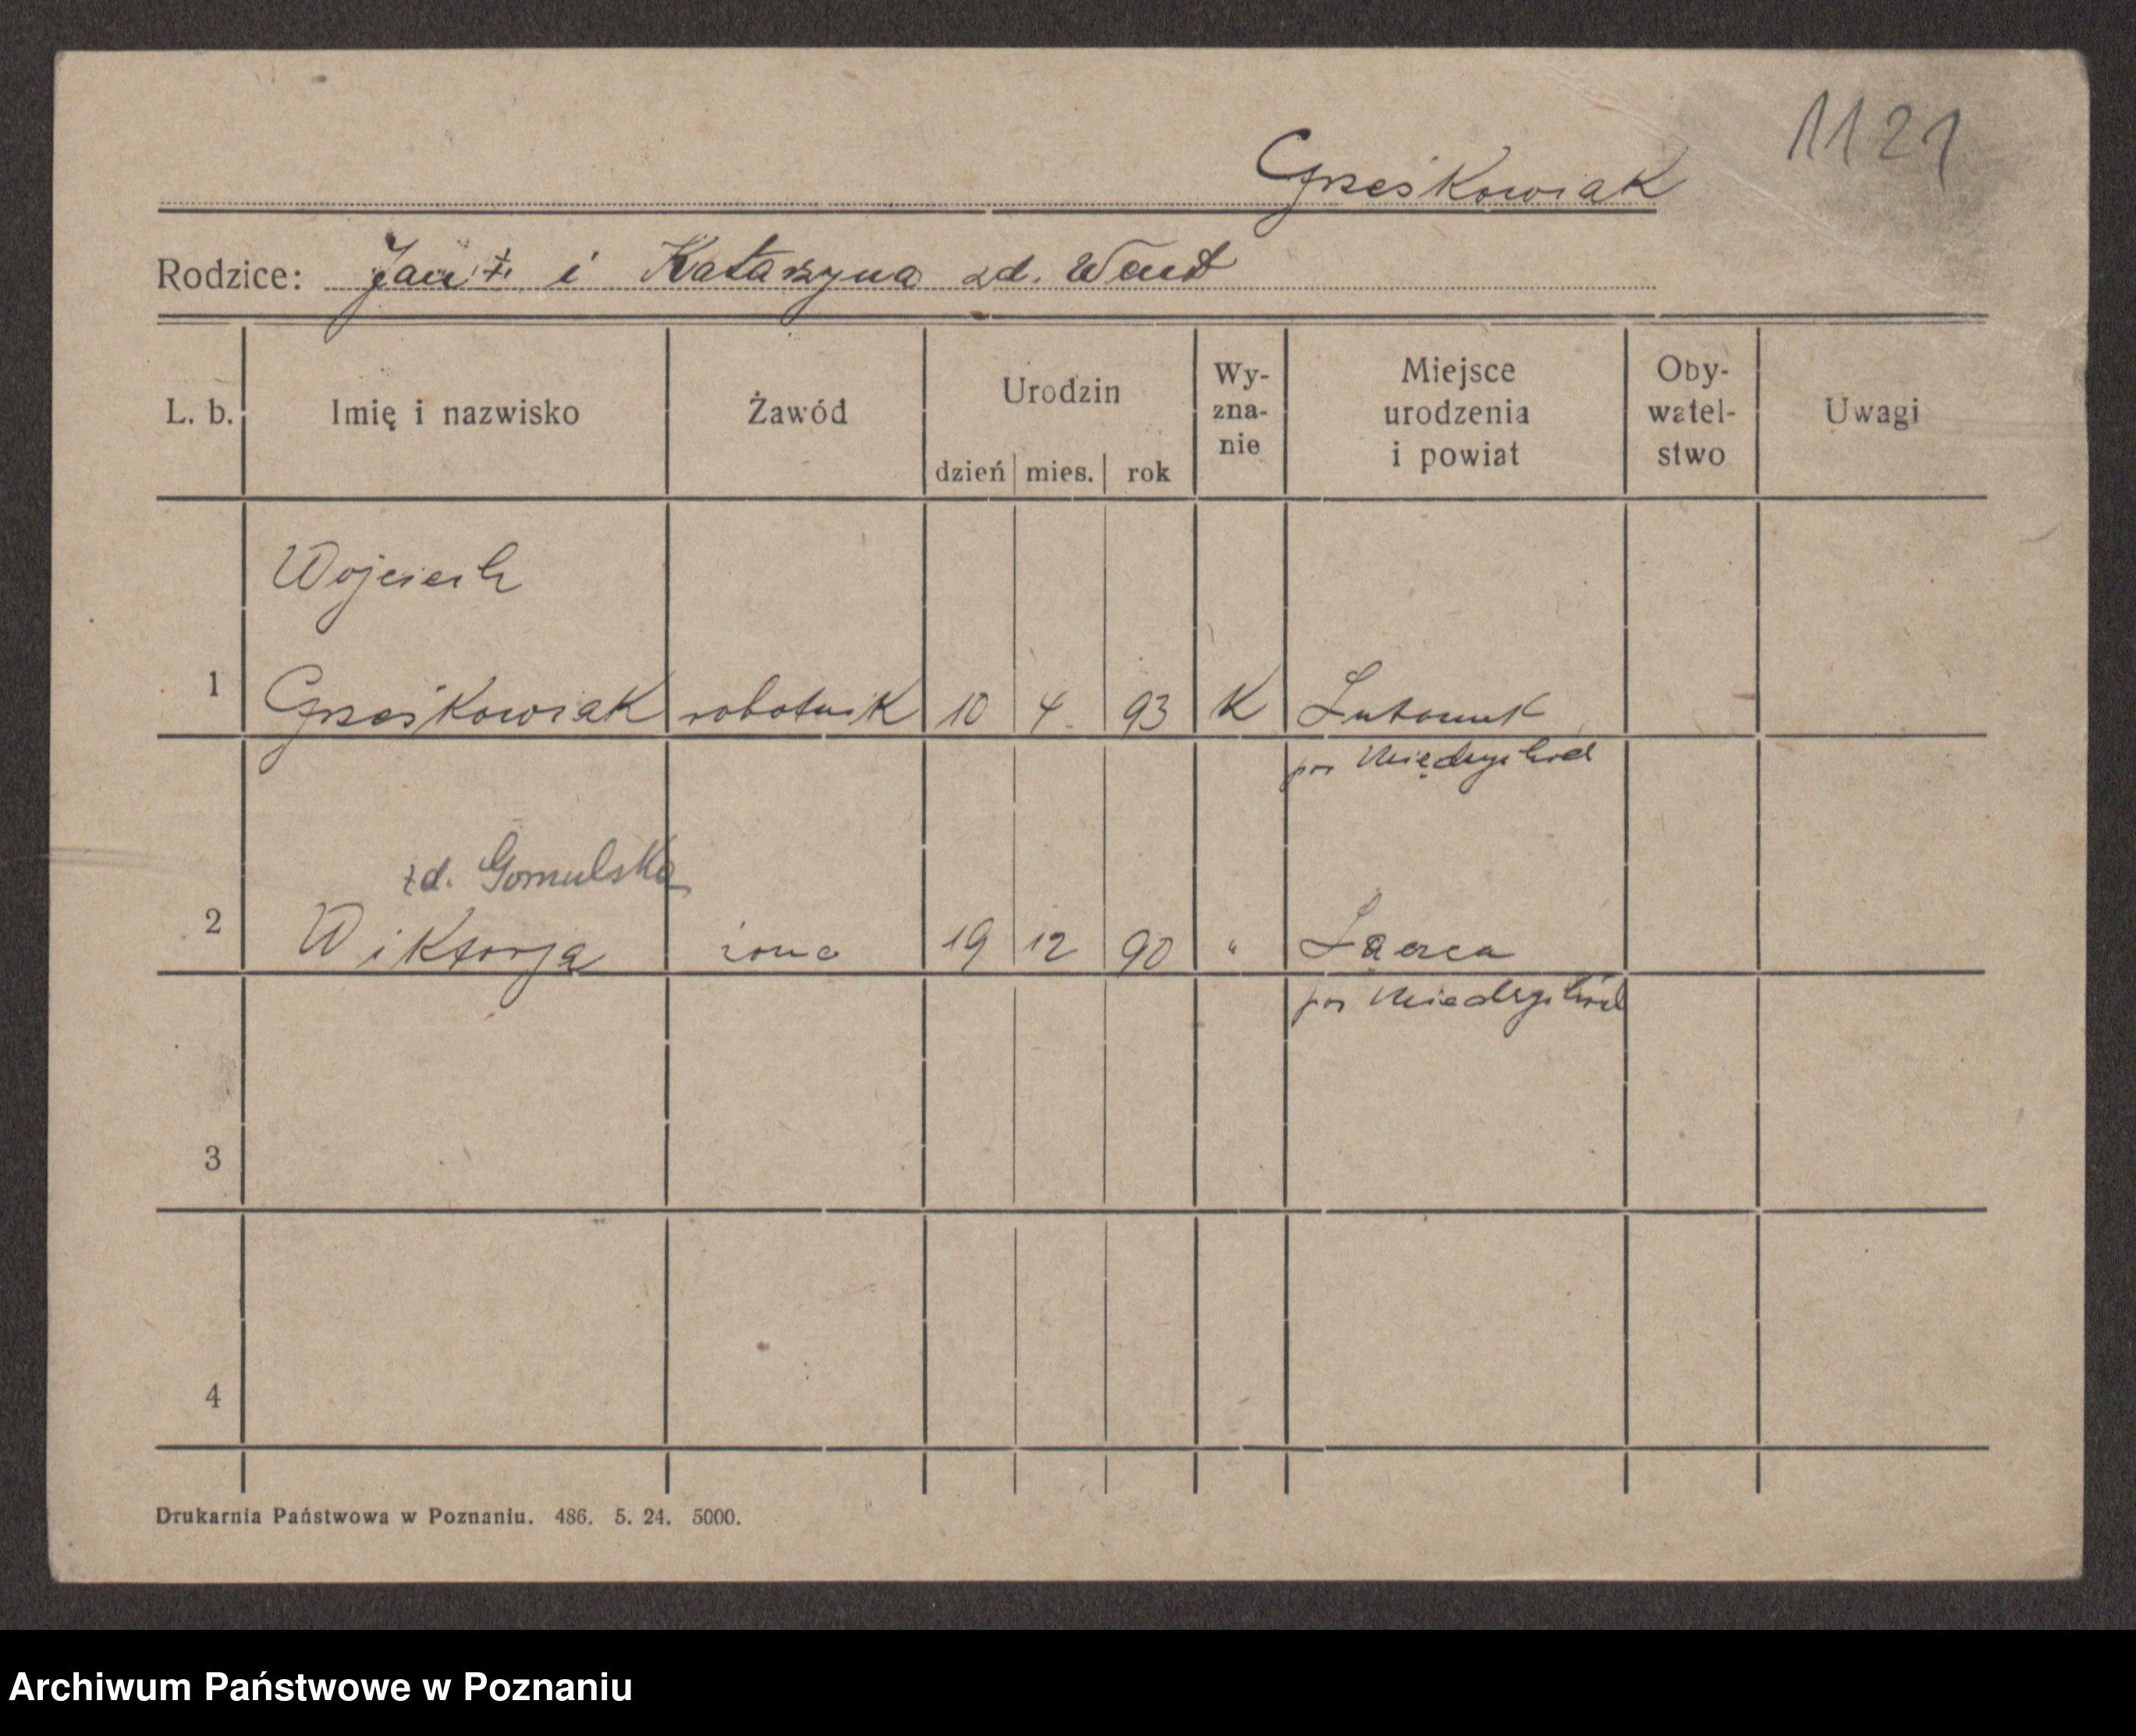 1121
Grześkowiak
Rodzice: Jan ‡ i Katarzyna zd.
L. b. Imię i nazwisko Żawód Urodzin dzień mies. rok Wy-zna-nie Miejsce urodzenia i powiat Oby-watel-stwo Uwagi
Wojciech
1 Grześkowiak robotnik 10 4 93 K
pow Międzychód
zd. Gomulska
2 Wiktorja żona 19 12 90 "
pow Międzychód
3
4
Drukarnia Państwowa w Poznaniu. 486. 5. 24. 5000.
Archiwum Państwowe w Poznaniu